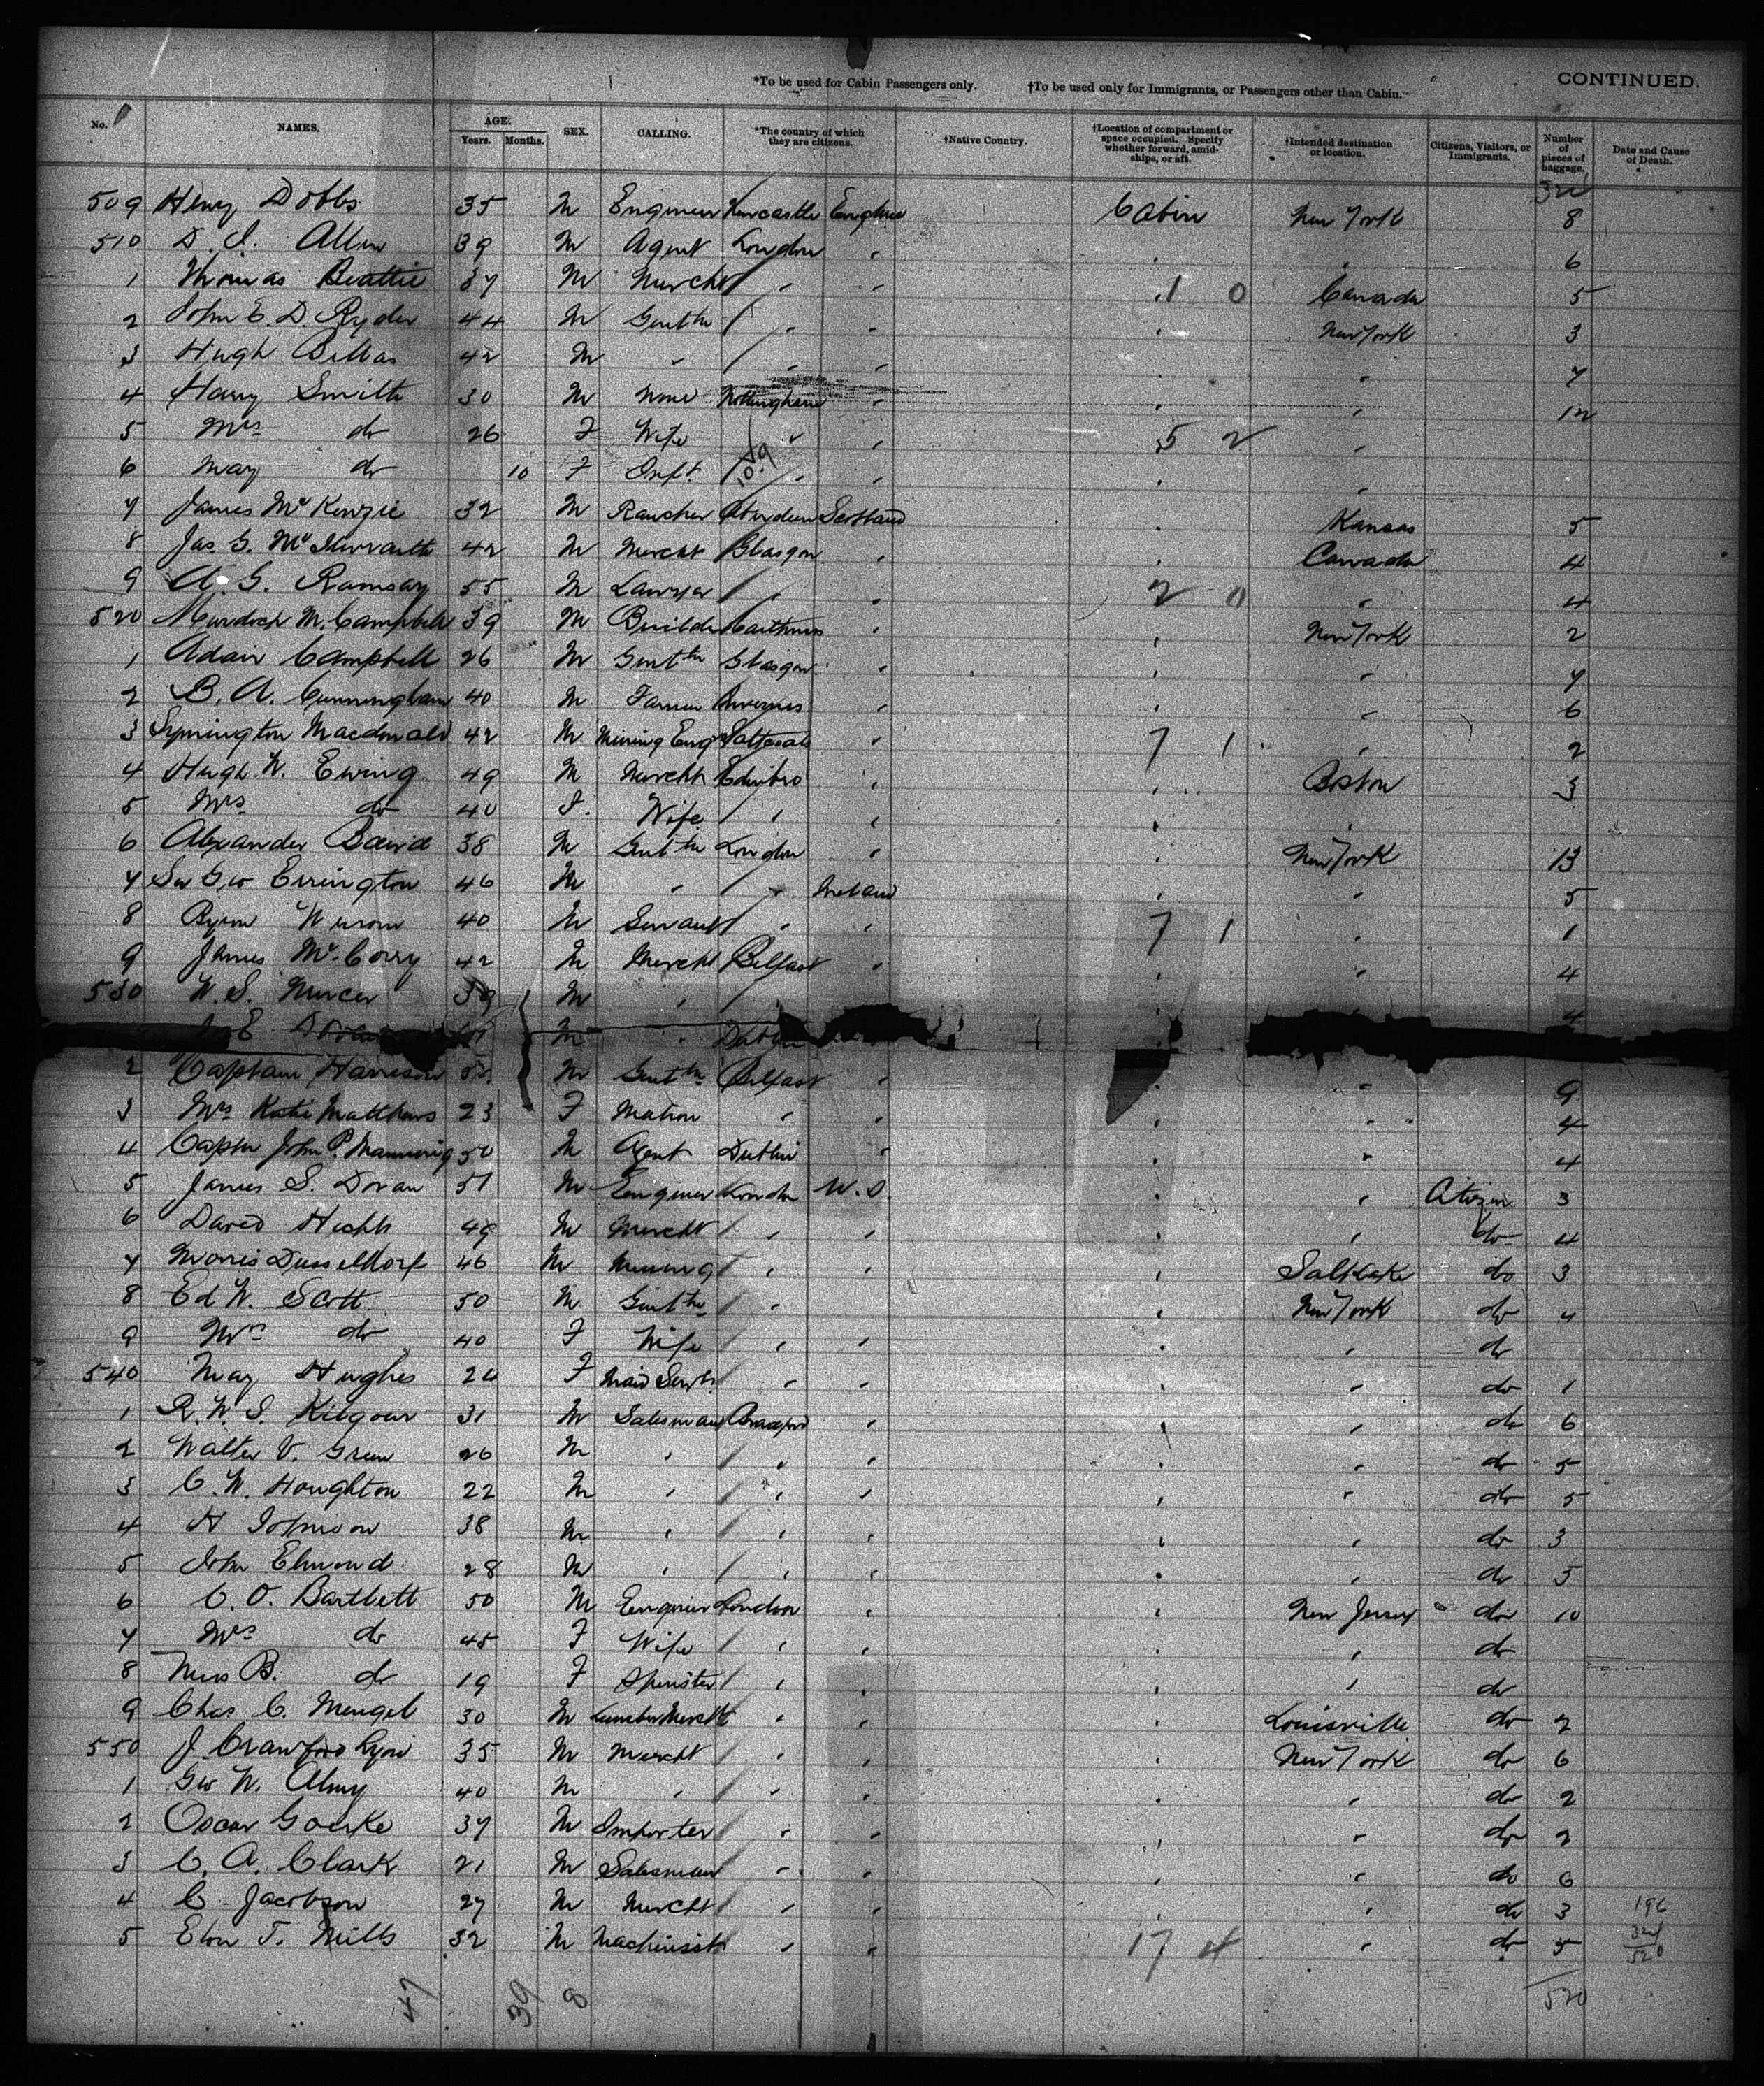 *To be used for Cabin Passengers only. †To be used only for Immigrants, or Passengers other than Cabin. CONTINUED.
No. NAMES. AGE. Years. Months. SEX. CALLING. *The country of which they are citizens. †Native Country. †Location of compartment or space occupied. Specify whether forward, amidships, or aft. †Intended destination or location. Citizens, Visitors, or Immigrants. Number of pieces of baggage. Date and Cause of Death.
509 Henry Dobbs 35 M Engineer Newcastle England Cabin New York 8
510 D. J. Allen 39 M Agent London " " " 6
1 Thomas Beattie 37 M Mercht " " " 1 0 Canada 5
2 John E. D. Ryder 44 M Gentln " " " New York 3
3 Hugh Bellas 42 M " " " " " 7
4 Harry Smith 30 M None Nottingham " " " 12
5 Mrs do 26 F Wife " " 5 2 "
6 May do 10 F Inft. " " " "
7 James McKenzie 32 M Rancher Aberdeen Scotland " Kansas 5
8 Jas. G. McIlwraith 42 M Mercht Glasgow " " Canada 4
9 A. G. Ramsay 55 M Lawyer " " 2 0 " 4
520 Murdoch M. Campbell 39 M Builder Caithness " " New York 2
1 Adair Campbell 26 M Gentln Glasgow " " " 7
2 B. A. Cunningham 40 M Farmer Inverness " " " 6
3 Symington Macdonald 42 M Mining Eng " 7 1 " 2
4 Hugh W. Ewing 49 M Mercht Edinbro " " Boston 3
5 Mrs do 40 F. Wife " " " "
6 Alexander Baird 38 M Gentln London " " New York 13
7 Sir Geo Errington 46 M " " Ireland " " 5
8 Byron 40 M Servant " " 7 1 " 1
9 James McCorry 42 M Mercht Belfast " " " 4
530 W. S. Mercer 39 M " " 4
E M " Dublin
2 Captain Harrison M Gentln Belfast " " " 9
3 Mrs Katie Matthews 23 F Matron " " " " 4
4 Captn John P. Manning 50 M Agent Dublin " " " 4
5 James S. Doran 51 M Engineer London U.S. " " Citizen 3
6 David Hechts 49 M Mercht " " " " do 4
7 Morris Dusseldorf 46 M Mining " " " Salt Lake do 3
8 Ed W. Scott 50 M Gentln " " New York do 4
9 Mrs do 40 F Wife " " " do
540 May Hughes 24 F Maid Servt. " " " " do 1
1 R. W. S. Kilgour 31 M Salesman Bradford " " " do 6
2 Walter V. Green 26 M " " " " " do 5
3 C. W. Houghton 22 M " " " " " do 5
4 H Johnson 38 M " " " " " do 3
5 John Elmond 28 M " " " " " do 5
6 C. O. Bartlett 50 M Engineer London " " New Jersey do 10
7 Mrs do 45 F Wife " " " " do
8 Miss B. do 19 F Spinster " " " " do
9 Chas C. Mengel 30 M Lumber Mercht " " " Louisville do 2
550 J Crawford Lyon 35 M Mercht " " " New York do 6
1 Geo W. Almy 40 M " " " " " do 2
2 Oscar Goerke 37 M Importer " " " " do 2
3 C. A. Clark 21 M Salesman " " " do 6
4 C. Jacobson 27 M Mercht " " " " do 3 196
5 Elon T. Mills 32 M Machinist " " 17 4 " do 5 324 520
47 39 8 520